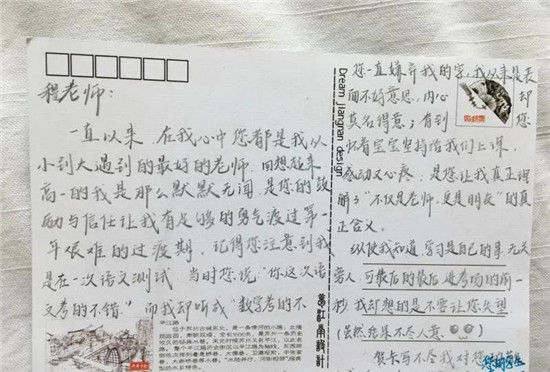 程老师：
一直以来，在我心中您都是我从
小到大遇到的最好的老师，回想起来
高一的我是那么默默无闻，是您的鼓
励与信任让我有足够的勇气渡过第一
年艰难的过渡期，记得您注意到我
是在一次语文测试，当时您说："你这次语
文考的不错"而我却听成"数学考的不
平江路
位于苏州古城东北，是一条傍河的小路，北接
Dream jiangnan design
萬江南設計
您一直嫌弃我的字，我从来是表
面不好意思，内心却
莫名得意；有到您
怀着宝宝坚持给我们上课，
感动又心疼，是您让我真正理
解了"不仅是老师，更是朋友"的真
正含义。
纵使我知道学习是自己的事无关
旁人，可最后的最后进考场的前一
秒我却想的是不要让您失望
(虽然结果不尽人意)
贺卡写不尽我对您